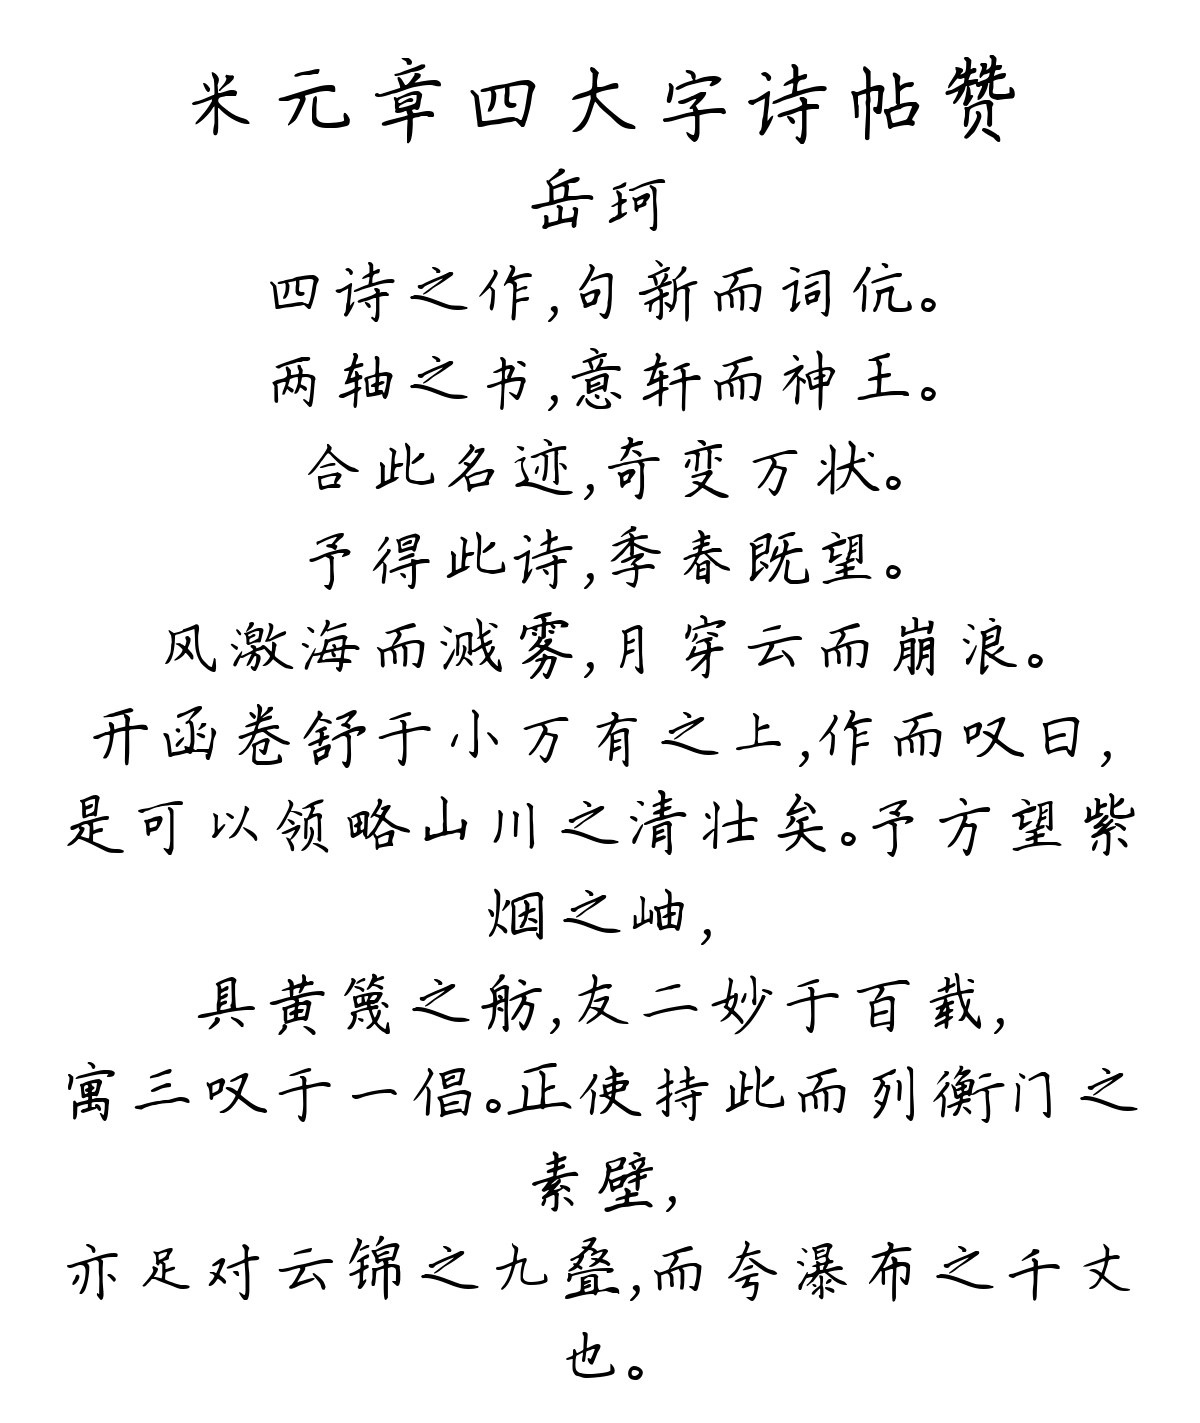 米元章四大字诗帖赞
岳珂
四诗之作,句新而词伉。
两轴之书,意轩而神王。
合此名迹,奇变万状。
予得此诗,季春既望。
风激海而溅雾,月穿云而崩浪。
开函卷舒于小万有之上,作而叹曰,
是可以领略山川之清壮矣。予方望紫
烟之岫,
具黄篾之舫,友二妙于百载,
寓三叹于一倡。正使持此而列衡门之
素壁,
亦足对云锦之九叠,而夸瀑布之千丈
也。